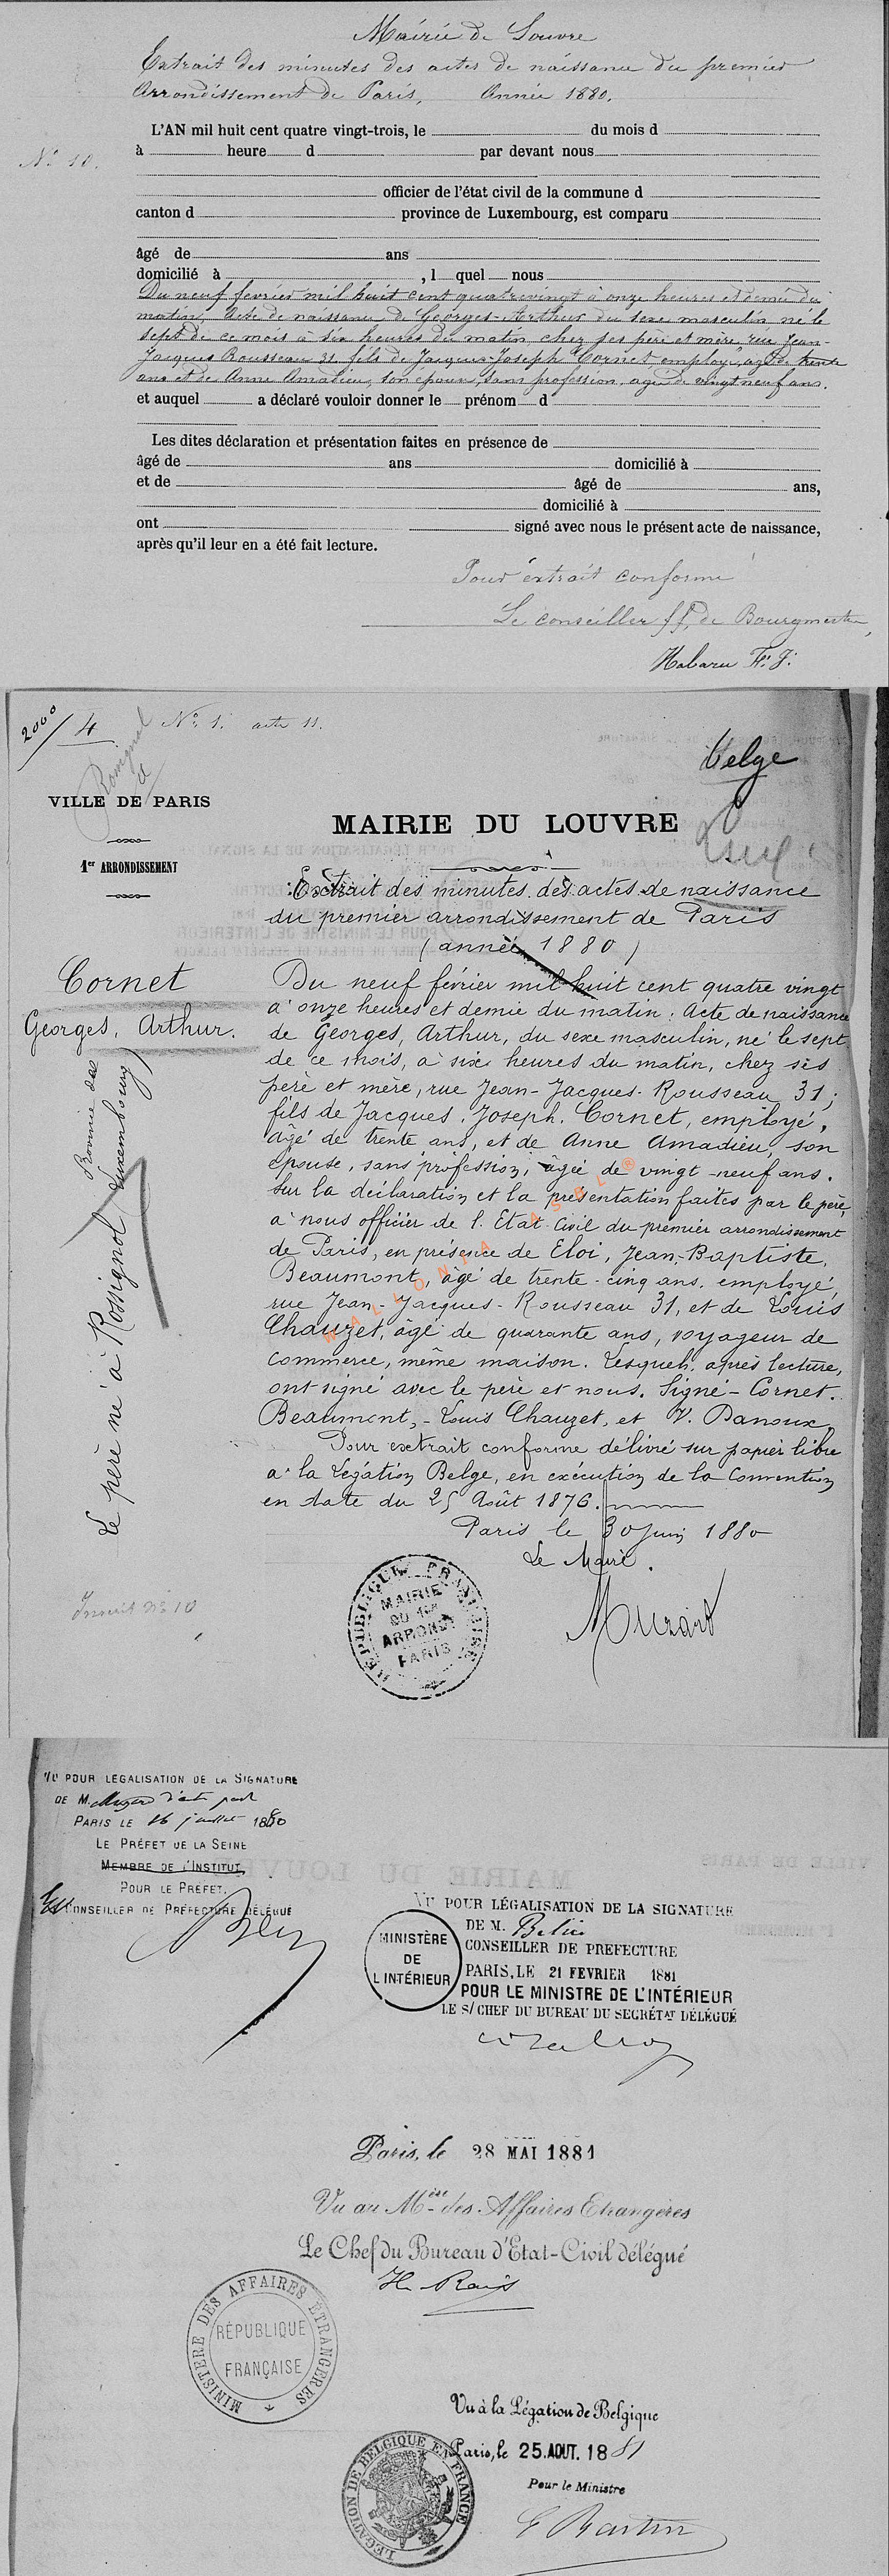 Mairie de Louvre
Extrait des minutes des actes de naissance du premier
Arrondissement de Paris, Année 1880.
L'AN mil huit cent quatre vingt-trois, le du mois d
N° 10. à heure d par devant nous
officier de l'état civil de la commune d
canton d province de Luxembourg, est comparu
âgé de ans
domicilié à , l quel nous
Du neuf fevrier mil huit cent quatrevingt à onze heures et demie du
matin, Acte de naissance de Georges-Arthur du sexe masculin né le
sept de ce mois à six heures du matin, chez ses père et mère, rue Jean-
Jacques Rousseau 31. fils de Jacques-Joseph Cornet employé, agé de trente
ans et de Anne Amadieu, son épouse, sans profession, agée de vingt neuf ans.
et auquel a déclaré vouloir donner le prénom d
Les dites déclaration et présentation faites en présence de
âgé de ans domicilié à
et de âgé de ans,
domicilié à
ont signé avec nous le présent acte de naissance,
après qu'il leur en a été fait lecture.
Pour extrait conforme
Le conseiller ff. de Bourgmestre,
Habaru F. J.
2000/4 N° 1. acte 11.
Rossignol
Belge
VILLE DE PARIS
MAIRIE DU LOUVRE
1er ARRONDISSEMENT
Extrait des minutes des actes de naissance
du premier arrondissement de Paris
(année 1880)
Cornet
Georges, Arthur.
Le père né à Rossignol (Province du Luxembourg)
Du neuf février mil huit cent quatre vingt
à onze heures et demie du matin. Acte de naissance
de Georges, Arthur, du sexe masculin, né le sept
de ce mois, à six heures du matin, chez ses
père et mère, rue Jean-Jacques-Rousseau 31;
fils de Jacques, Joseph, Cornet, employé,
âgé de trente ans, et de Anne Amadieu, son
épouse, sans profession, âgée de vingt-neuf ans.
Sur la déclaration et la présentation faites par le père,
à nous officier de l'Etat-Civil du premier arrondissement
de Paris, en présence de Eloi, Jean-Baptiste,
Beaumont, âgé de trente-cinq ans, employé,
rue Jean-Jacques-Rousseau 31, et de Louis
Chauzet, âgé de quarante ans, voyageur de
commerce, même maison. Lesquels, après lecture,
ont signé avec le père et nous. Signé - Cornet.
Beaumont, - Louis Chauzet, et V. Danoux.
Pour extrait conforme délivré sur papier libre
à la Légation Belge, en exécution de la Convention
en date du 25 Août 1876.
Paris le 30 Juin 1880
Le Maire.
WALLONIA ASBL ®
RÉPUBLIQUE FRANÇAISE
MAIRIE
DU 1er
ARRONDt
PARIS
Inscrit n° 10
VU POUR LÉGALISATION DE LA SIGNATURE
DE M. Muzard d'autre part
PARIS LE 16 juillet 1880
LE PRÉFET DE LA SEINE
MEMBRE DE L'INSTITUT,
POUR LE PRÉFET,
CONSEILLER DE PRÉFECTURE DÉLÉGUÉ
VU POUR LÉGALISATION DE LA SIGNATURE
DE M. Belin
CONSEILLER DE PREFECTURE
MINISTÈRE
DE
L'INTÉRIEUR
PARIS, LE 21 FEVRIER 1881
POUR LE MINISTRE DE L'INTÉRIEUR
LE S/CHEF DU BUREAU DU SECRÉTAt DÉLÉGUÉ
Paris, le 28 MAI 1881
Vu au Mère des Affaires Etrangères
Le Chef du Bureau d'Etat-Civil délégué
MINISTÈRE DES AFFAIRES ÉTRANGÈRES
RÉPUBLIQUE
FRANÇAISE
Vu à la Légation de Belgique
Paris, le 25. AOUT. 1881
Pour le Ministre
LÉGATION DE BELGIQUE EN FRANCE